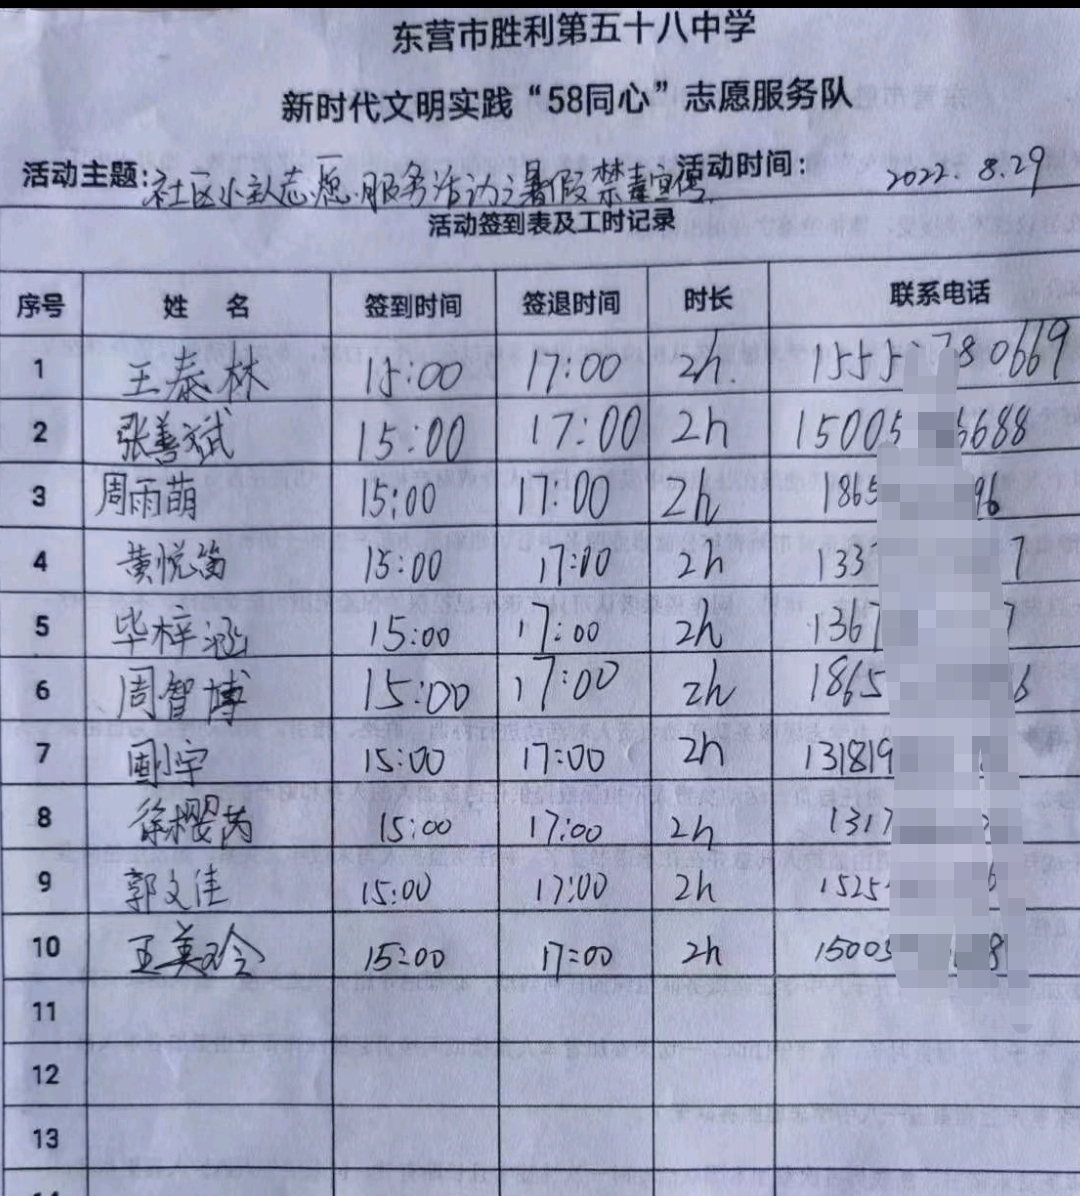 东营市胜利第五十八中学
新时代文明实践“58同心”志愿服务队
活动主题:社区小队志愿服务活动之暑假禁毒宣传 活动时间: 2022.8.29
活动签到表及工时记录
序号 姓 名 签到时间 签退时间 时长 联系电话
1 王泰林 15:00 17:00 2h. 1555 780669
2 张善斌 15:00 17:00 2h 15005 6688
3 周雨萌 15:00 17:00 2h 1865 96
4 黄悦笛 15:00 17:00 2h 133 7
5 毕梓涵 15:00 17:00 2h 1361 7
6 周智博 15:00 17:00 2h 1865 6
7 宇 15:00 17:00 2h 131819
8 徐樱芮 15:00 17:00 2h 1317
9 郭文佳 15:00 17:00 2h 1525 6
10 王美玲 15:00 17:00 2h 15005 8
11
12
13